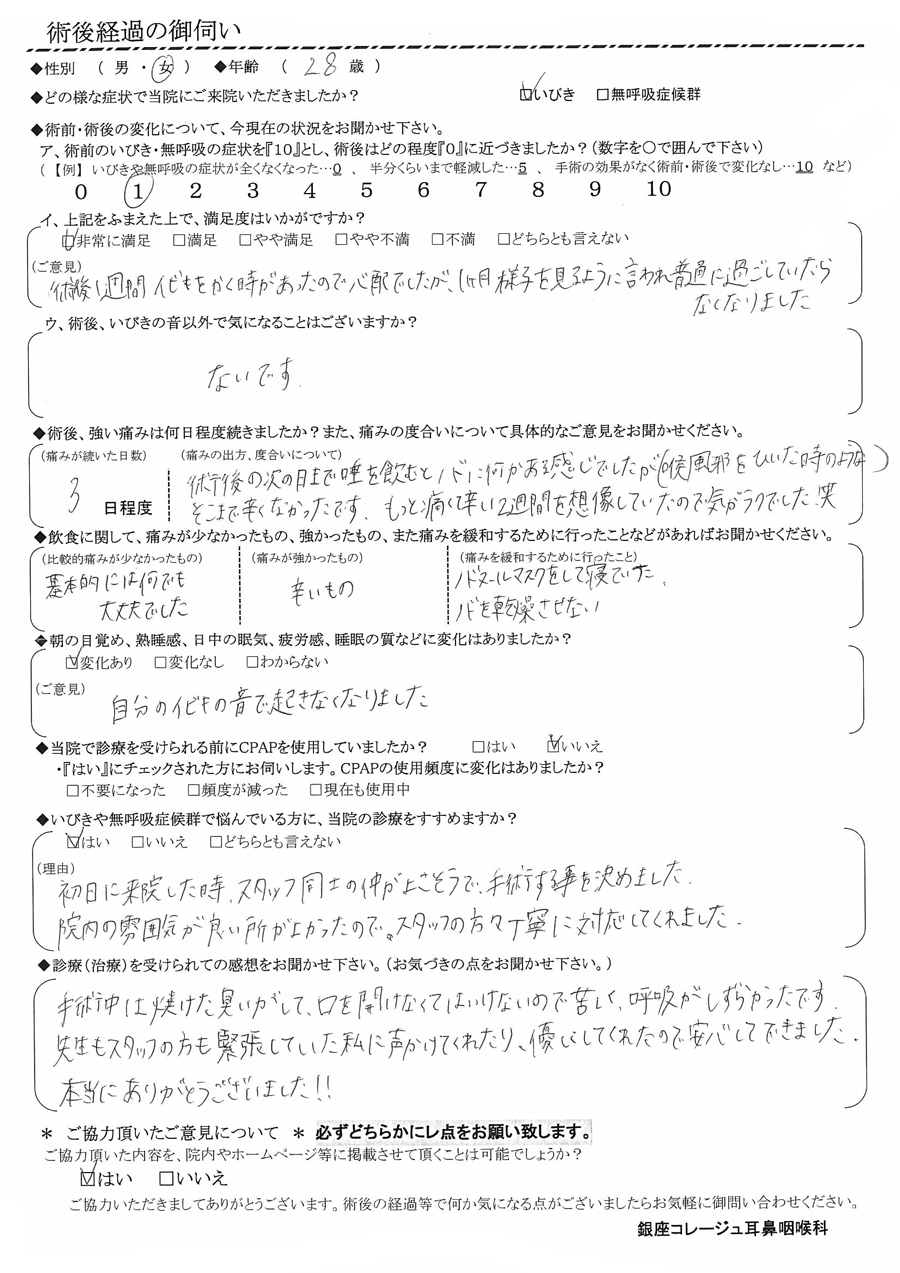 術後経過の御伺い
◆性別 ( 男 ・ 女 ) ◆年齢 ( 28 歳 )
◆どの様な症状で当院にご来院いただきましたか? ☑いびき □無呼吸症候群
◆術前・術後の変化について、今現在の状況をお聞かせ下さい。
ア、術前のいびき・無呼吸の症状を『10』とし、術後はどの程度『0』に近づきましたか?(数字を○で囲んで下さい)
(【例】 いびきや無呼吸の症状が全くなくなった…0 、 半分くらいまで軽減した…5 、 手術の効果がなく術前・術後で変化なし…10 など)
0 1 2 3 4 5 6 7 8 9 10
イ、上記をふまえた上で、満足度はいかがですか?
☑非常に満足 □満足 □やや満足 □やや不満 □不満 □どちらとも言えない
(ご意見)
術後1週間イビキをかく時があったので心配でしたが、1ヶ月様子を見るように言われ普通に過ごしていたら
なくなりました
ウ、術後、いびきの音以外で気になることはございますか?
ないです.
◆術後、強い痛みは何日程度続きましたか?また、痛みの度合いについて具体的なご意見をお聞かせください。
(痛みが続いた日数) (痛みの出方、度合いについて)
術行後の次の日まで唾を飲むとノドに何かある感じでしたが(喉風邪をひいた時のような)
3 日程度 そこまで辛くなかったです. もっと痛くて辛い2週間を想像していたので気がラクでした 笑
◆飲食に関して、痛みが少なかったもの、強かったもの、また痛みを緩和するために行ったことなどがあればお聞かせください。
(比較的痛みが少なかったもの) (痛みが強かったもの) (痛みを緩和するために行ったこと)
基本的には何でも 辛いもの ノドヌールマスクをして寝ていた.
大丈夫でした ノドを乾燥させない
◆朝の目覚め、熟睡感、日中の眠気、疲労感、睡眠の質などに変化はありましたか?
☑変化あり □変化なし □わからない
(ご意見)
自分のイビキの音で起きなくなりました
◆当院で診療を受けられる前にCPAPを使用していましたか? □はい ☑いいえ
・『はい』にチェックされた方にお伺いします。CPAPの使用頻度に変化はありましたか?
□不要になった □頻度が減った □現在も使用中
◆いびきや無呼吸症候群で悩んでいる方に、当院の診療をすすめますか?
☑はい □いいえ □どちらとも言えない
(理由)
初日に来院した時、スタッフ同士の仲が良さそうで、手術する事を決めました.
院内の雰囲気が良い所がよかったので。スタッフの方々丁寧に対応してくれました.
◆診療(治療)を受けられての感想をお聞かせ下さい。(お気づきの点をお聞かせ下さい。)
手術中は焼けた臭いがして、口を開けなくてはいけないので苦しく、呼吸がしずらかったです.
先生もスタッフの方も緊張していた私に声かけてくれたり、優しくしてくれたので安心してできました.
本当にありがとうございました!!
* ご協力頂いたご意見について * 必ずどちらかにレ点をお願い致します。
ご協力頂いた内容を、院内やホームページ等に掲載させて頂くことは可能でしょうか?
☑はい □いいえ
ご協力いただきましてありがとうございます。術後の経過等で何か気になる点がございましたらお気軽に御問い合わせください。
銀座コレージュ耳鼻咽喉科